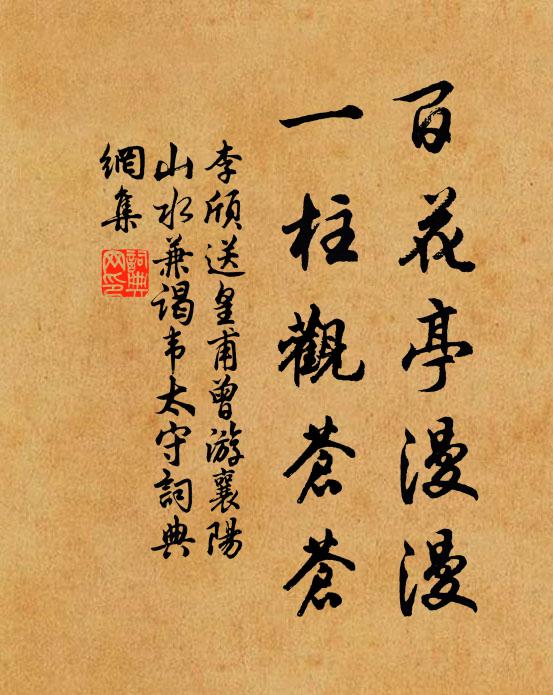 百花亭漫漫
一柱觀蒼蒼
李頎送皇甫曾游襄陽
山水兼謁韦太守詞典
網集
詞典
网印